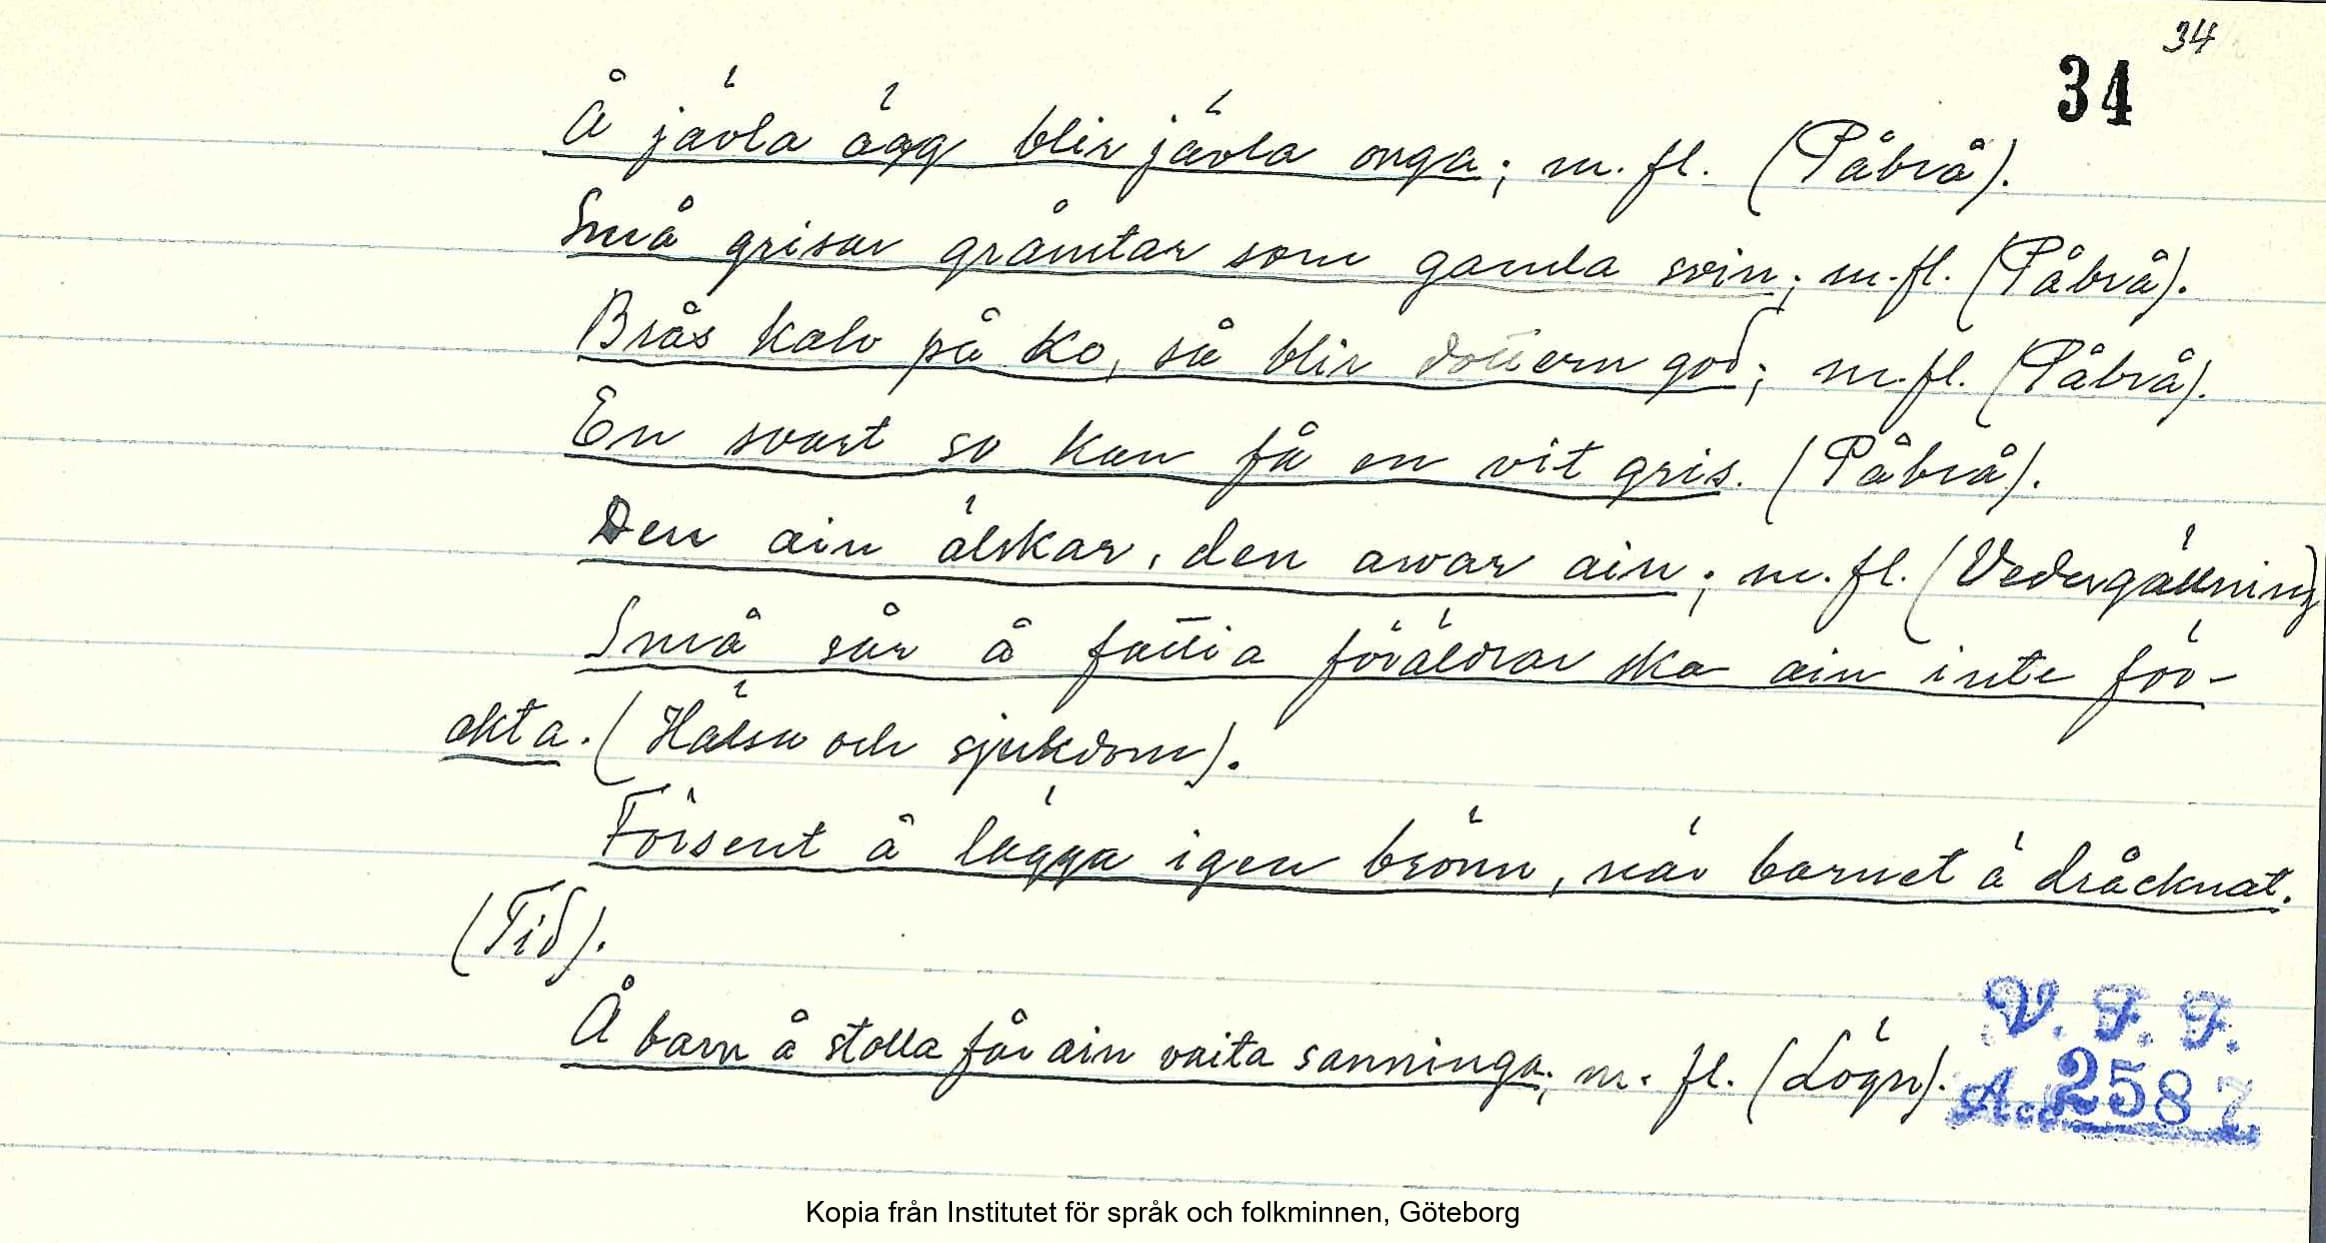 34
34
Å jävla ägg blir jävla onga; m. fl. (Påbrå).
Små grisar gråmtar som gamla svin; m. fl. (Påbrå).
Brås kalv på ko, så blir dottern god; m. fl. (Påbrå).
En svart so kan få en vit gris. (Påbrå).
Den ain älskar, den awar ain; m. fl. (Vedergällning)
Små sår å fattia föräldrar ska ain inte för-
akta. (Hälsa och sjukdom).
Försent å lägga igen brönn, när barnet ä dråcknat.
(Tid).
Å barn å stolla får ain vaita sanninga; m. fl. (Lögn).
V. F. F.
Acc. 2587
Kopia från Institutet för språk och folkminnen, Göteborg